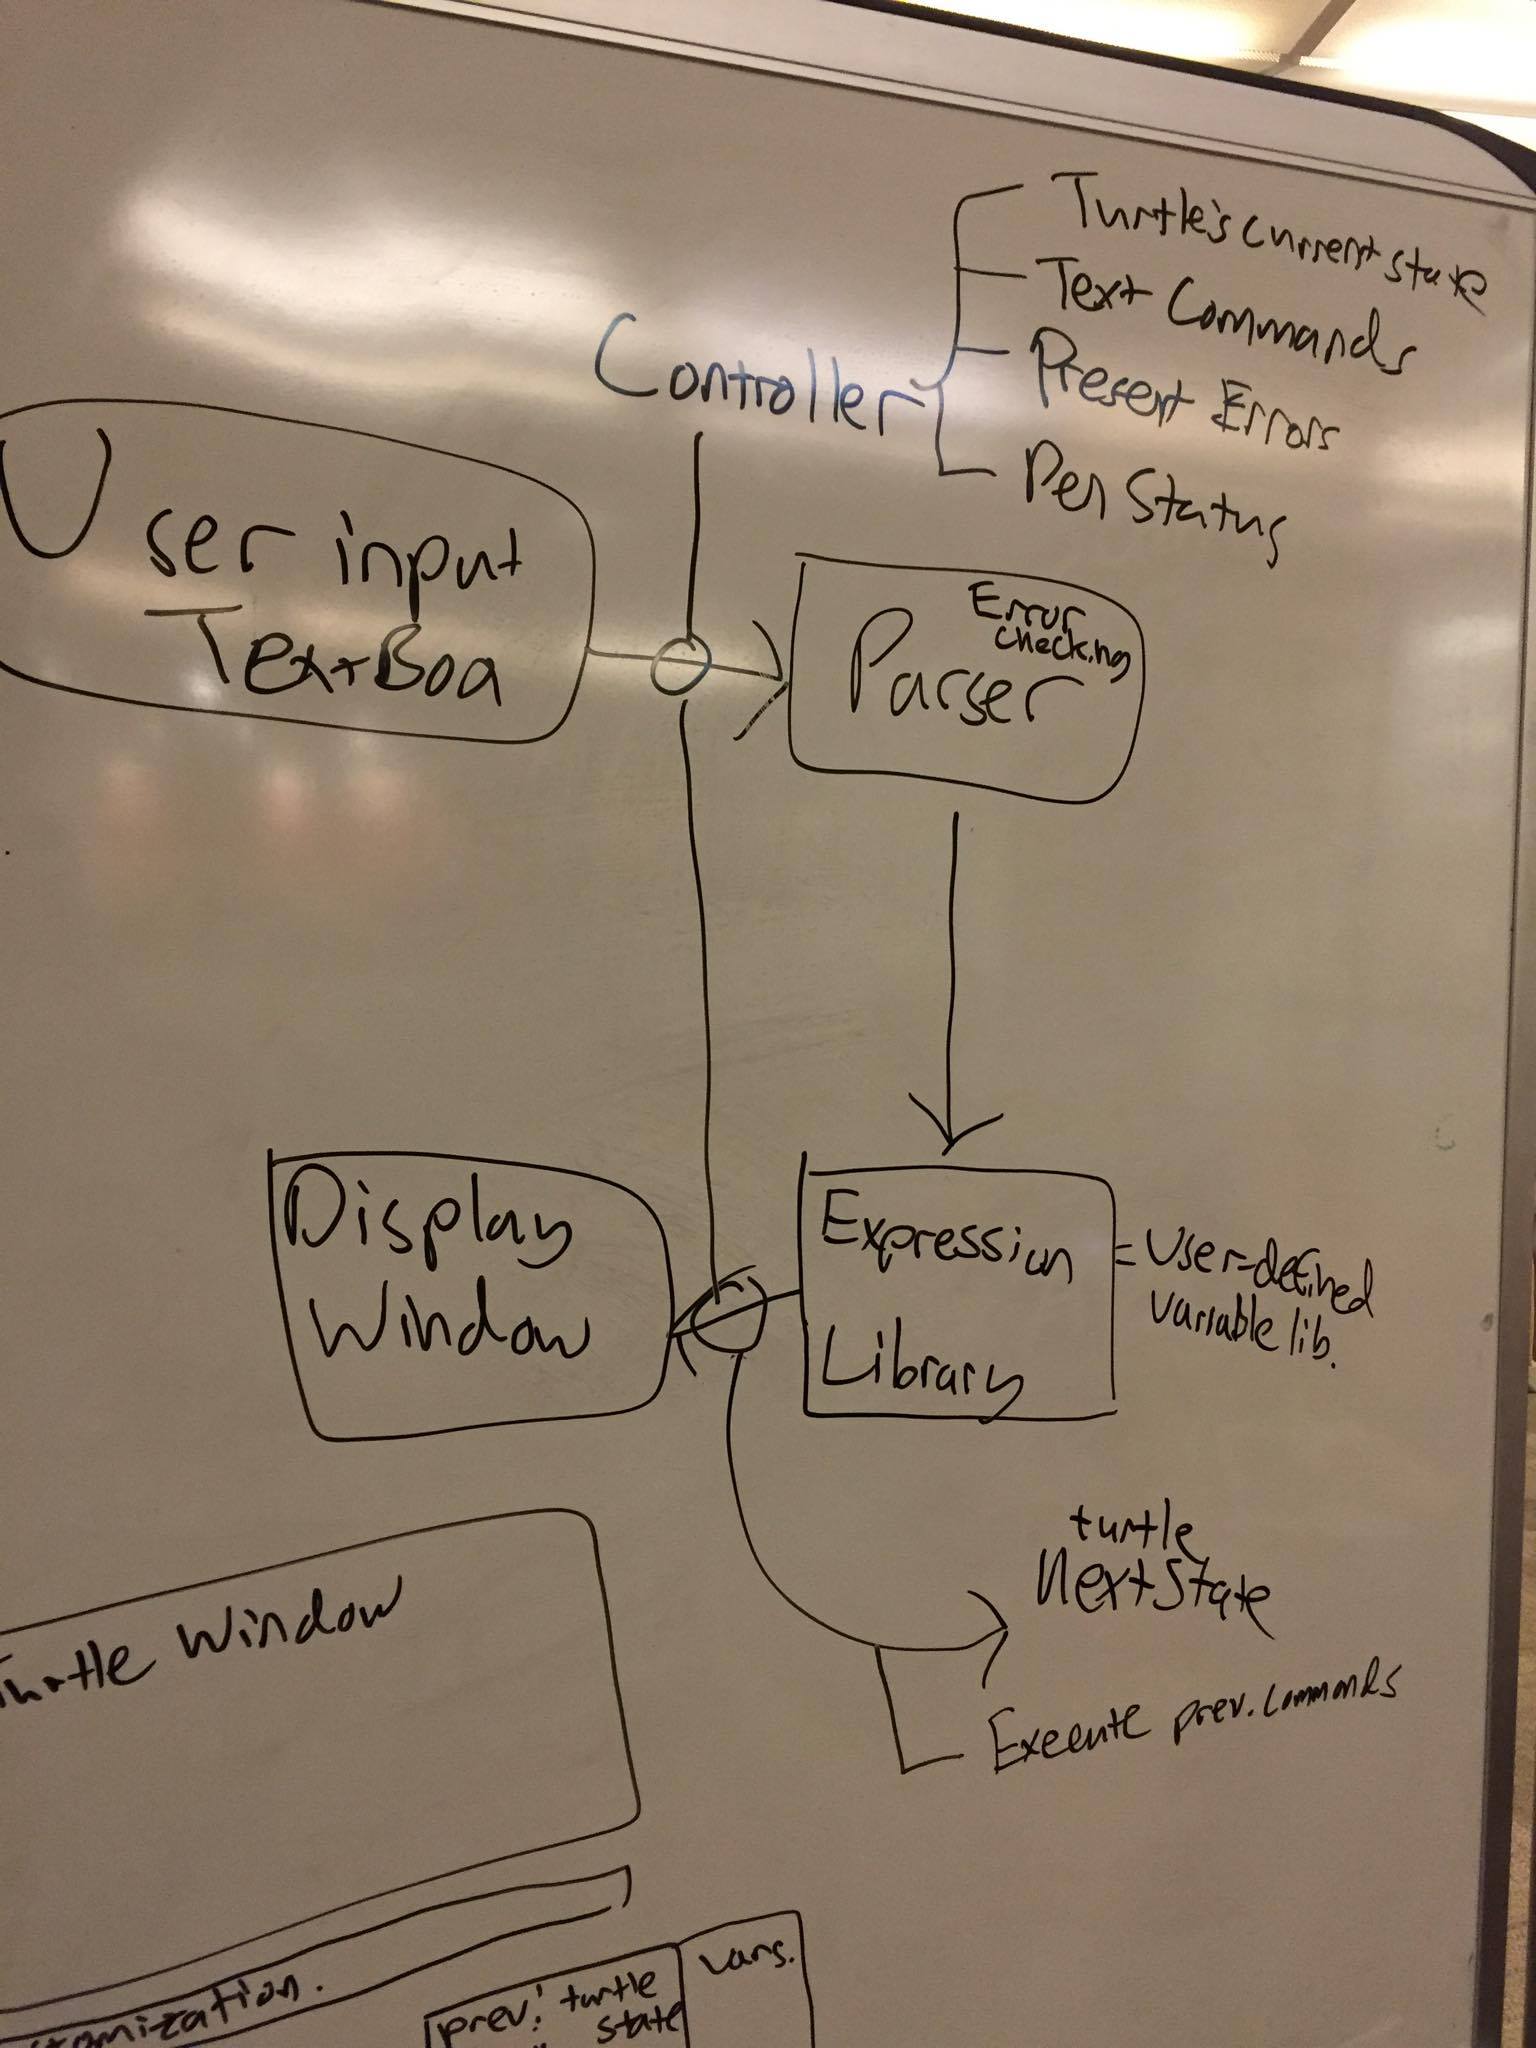 Turtle's current state
Text Commands
Controller
Present Errors
Pen Status
User input
TextBox
Error
checking
Parser
Display
Window
Expression
Library
= User-defined
variable lib.
turtle
Next State
Execute prev. commands
Turtle Window
vars.
prev. turtle
state